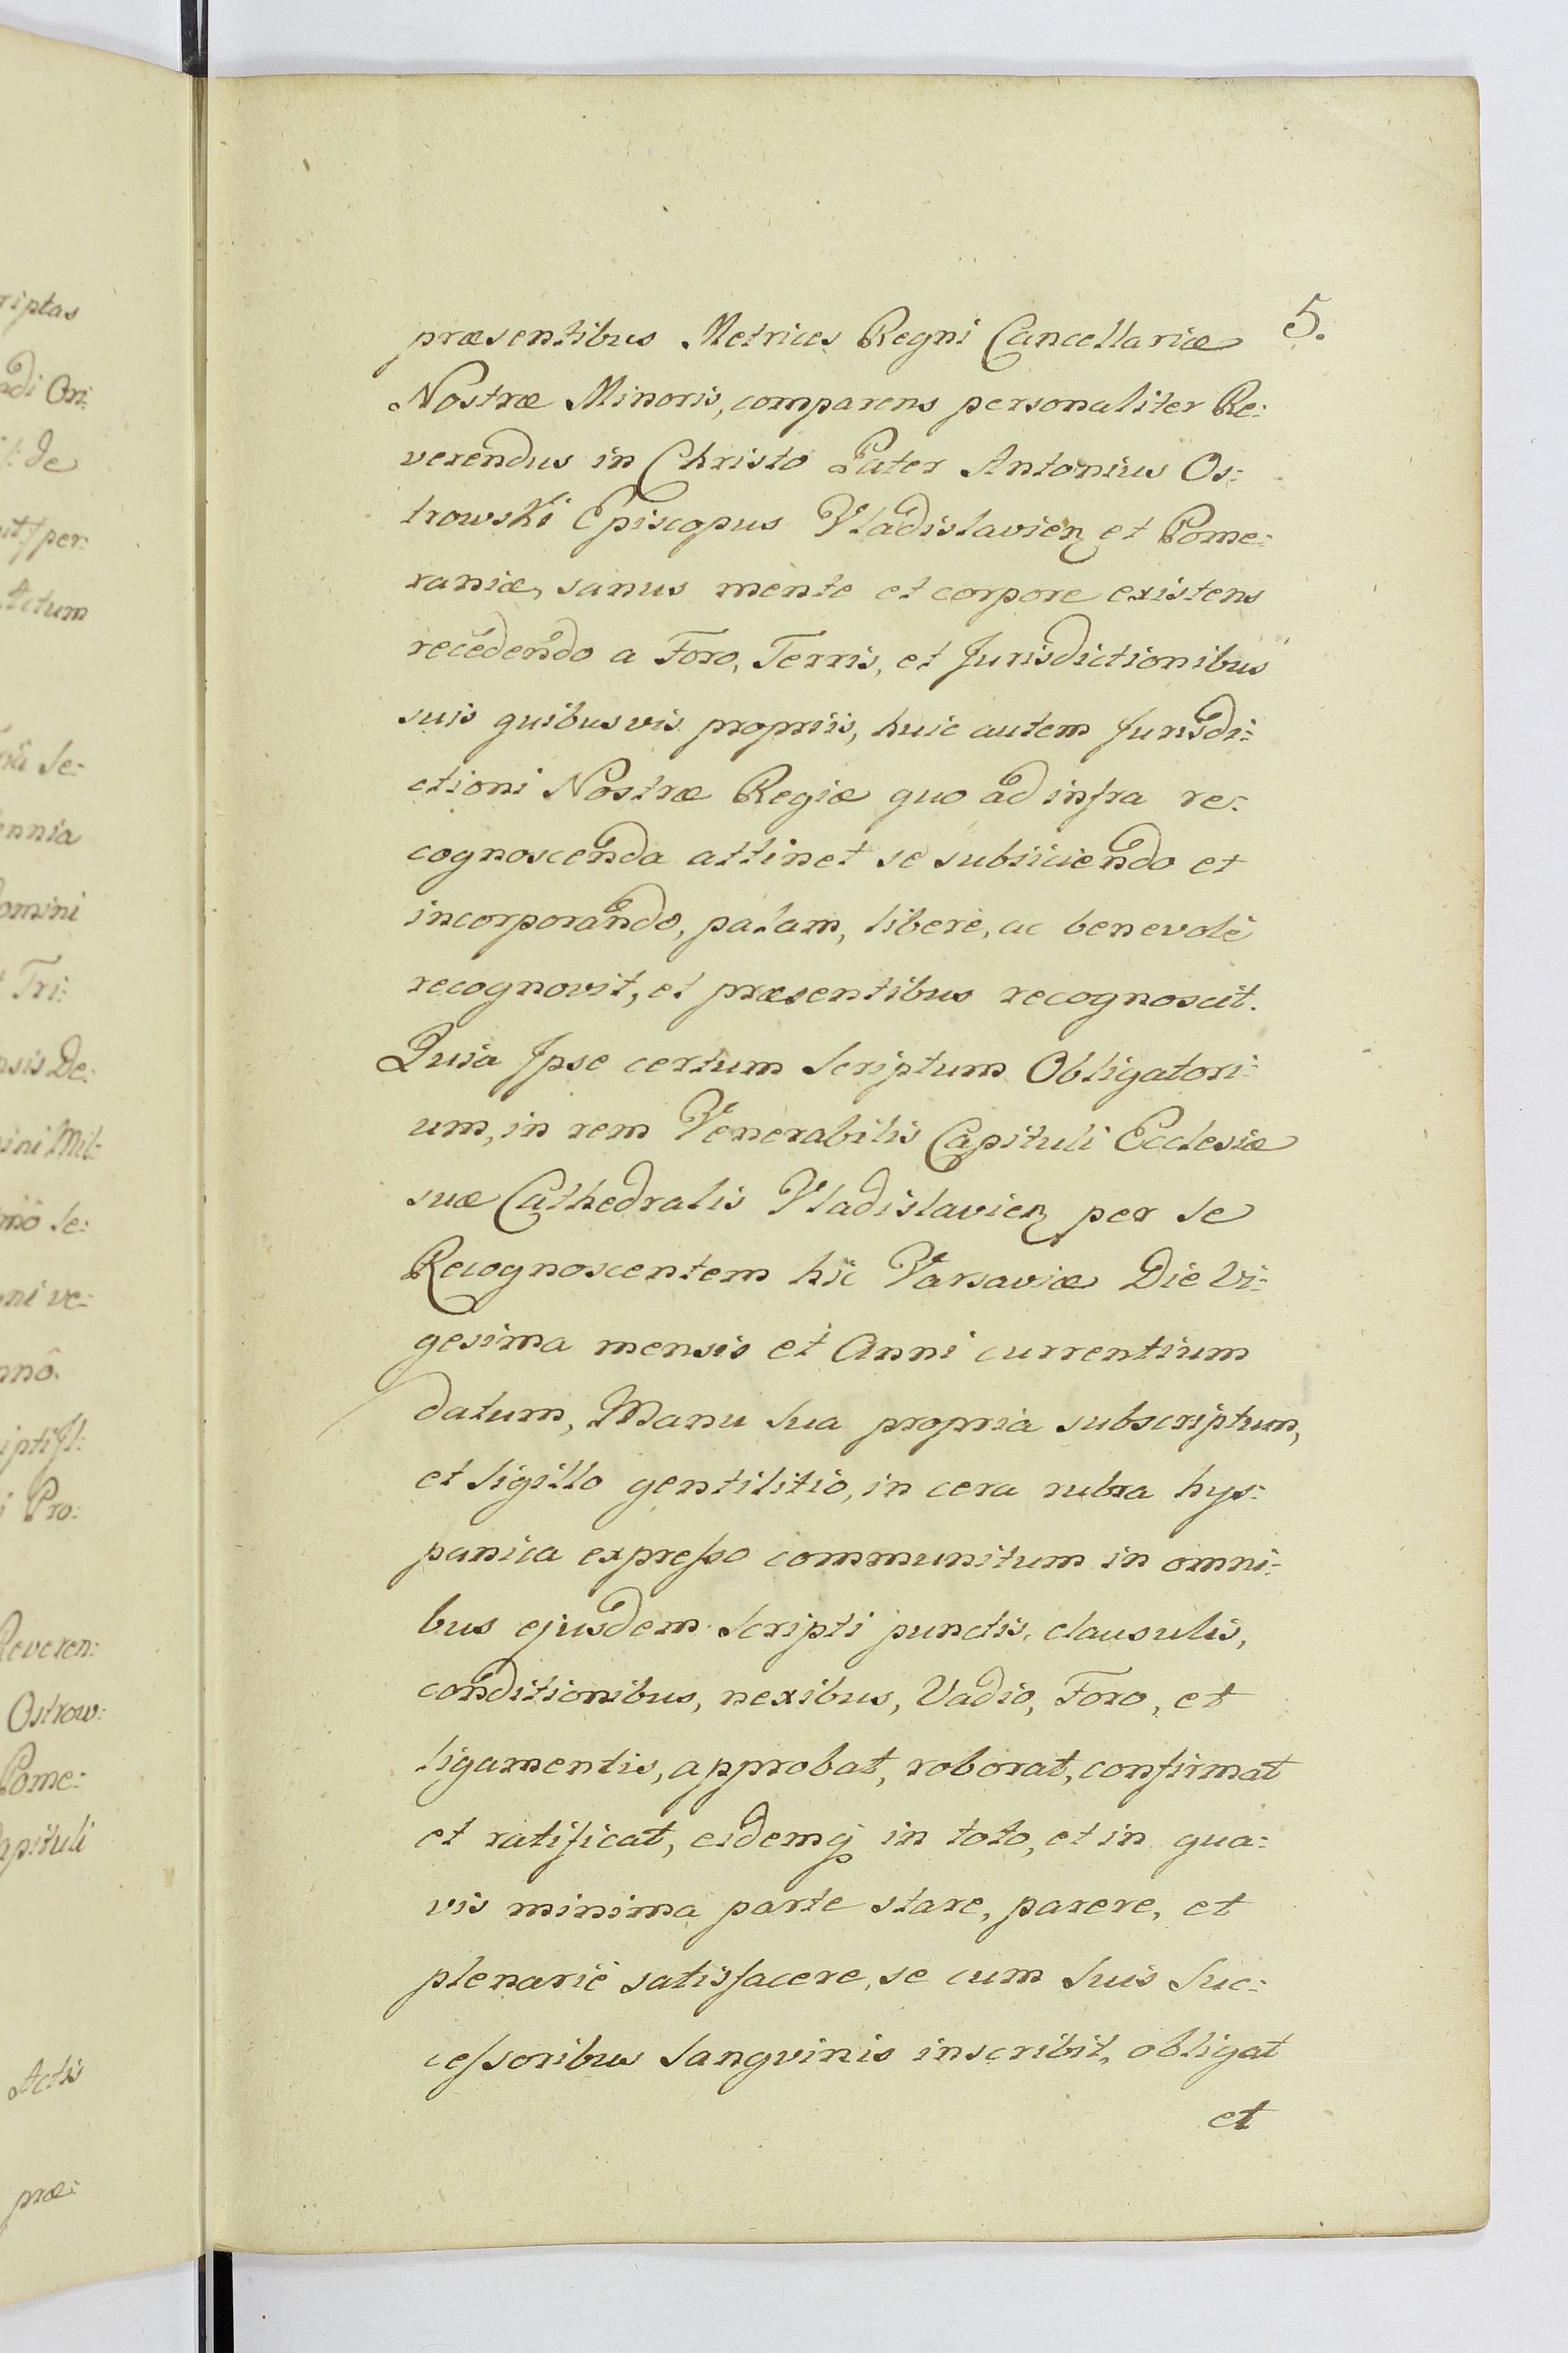 riptas
adi Ori:
: de
it/per:
Actum
nâ Se:
ennia
omini
Tri:
nsis De:
ini Mil:
mô Se:
ni ve:
nnô.
ipti/st:
i Pro:
Reveren:
Ostrow:
Pome:
apituli
Actis
præ:
5.
præsentibus Metrices Regni Cancellariæ
Nostræ Minoris, comparens personaliter Re:
verendus in Christo Pater Antonius Os:
trowski Episcopus Vladislavien et Pome:
raniæ, sanus mente et corpore existens
recedendo a Foro, Terris, et Jurisdictionibus
suis quibusvis propriis, huic autem Jurisdi:
ctioni Nostræ Regiæ quo ad infra re:
cognoscenda attinet se subiiciendo et
incorporando, palam, liberè, ac benevolè
recognovit, et præsentibus recognoscit.
Quia Ipse certum Scriptum Obligatori:
um, in rem Venerabilis Capituli Ecclesiæ
suæ Cathedralis Vladislavien per se
Recognoscentem hîc Varsaviæ Die Vi:
gesima mensis et Anni currentium
datum, Manu Sua propria subscriptum,
et Sigillo gentilitio, in cera rubra hys:
panica expreſso communitum in omni:
bus ejusdem Scripti punctis, clausulis,
conditionibus, nexibus, Vadio, Foro, et
ligamentis, approbat, roborat, confirmat
et ratificat, eidemq in toto, et in qua:
vis minima parte stare, parere, et
plenariè satisfacere, se cum Suis Suc:
ceſsoribus Sangvinis inscribit, obligat
et